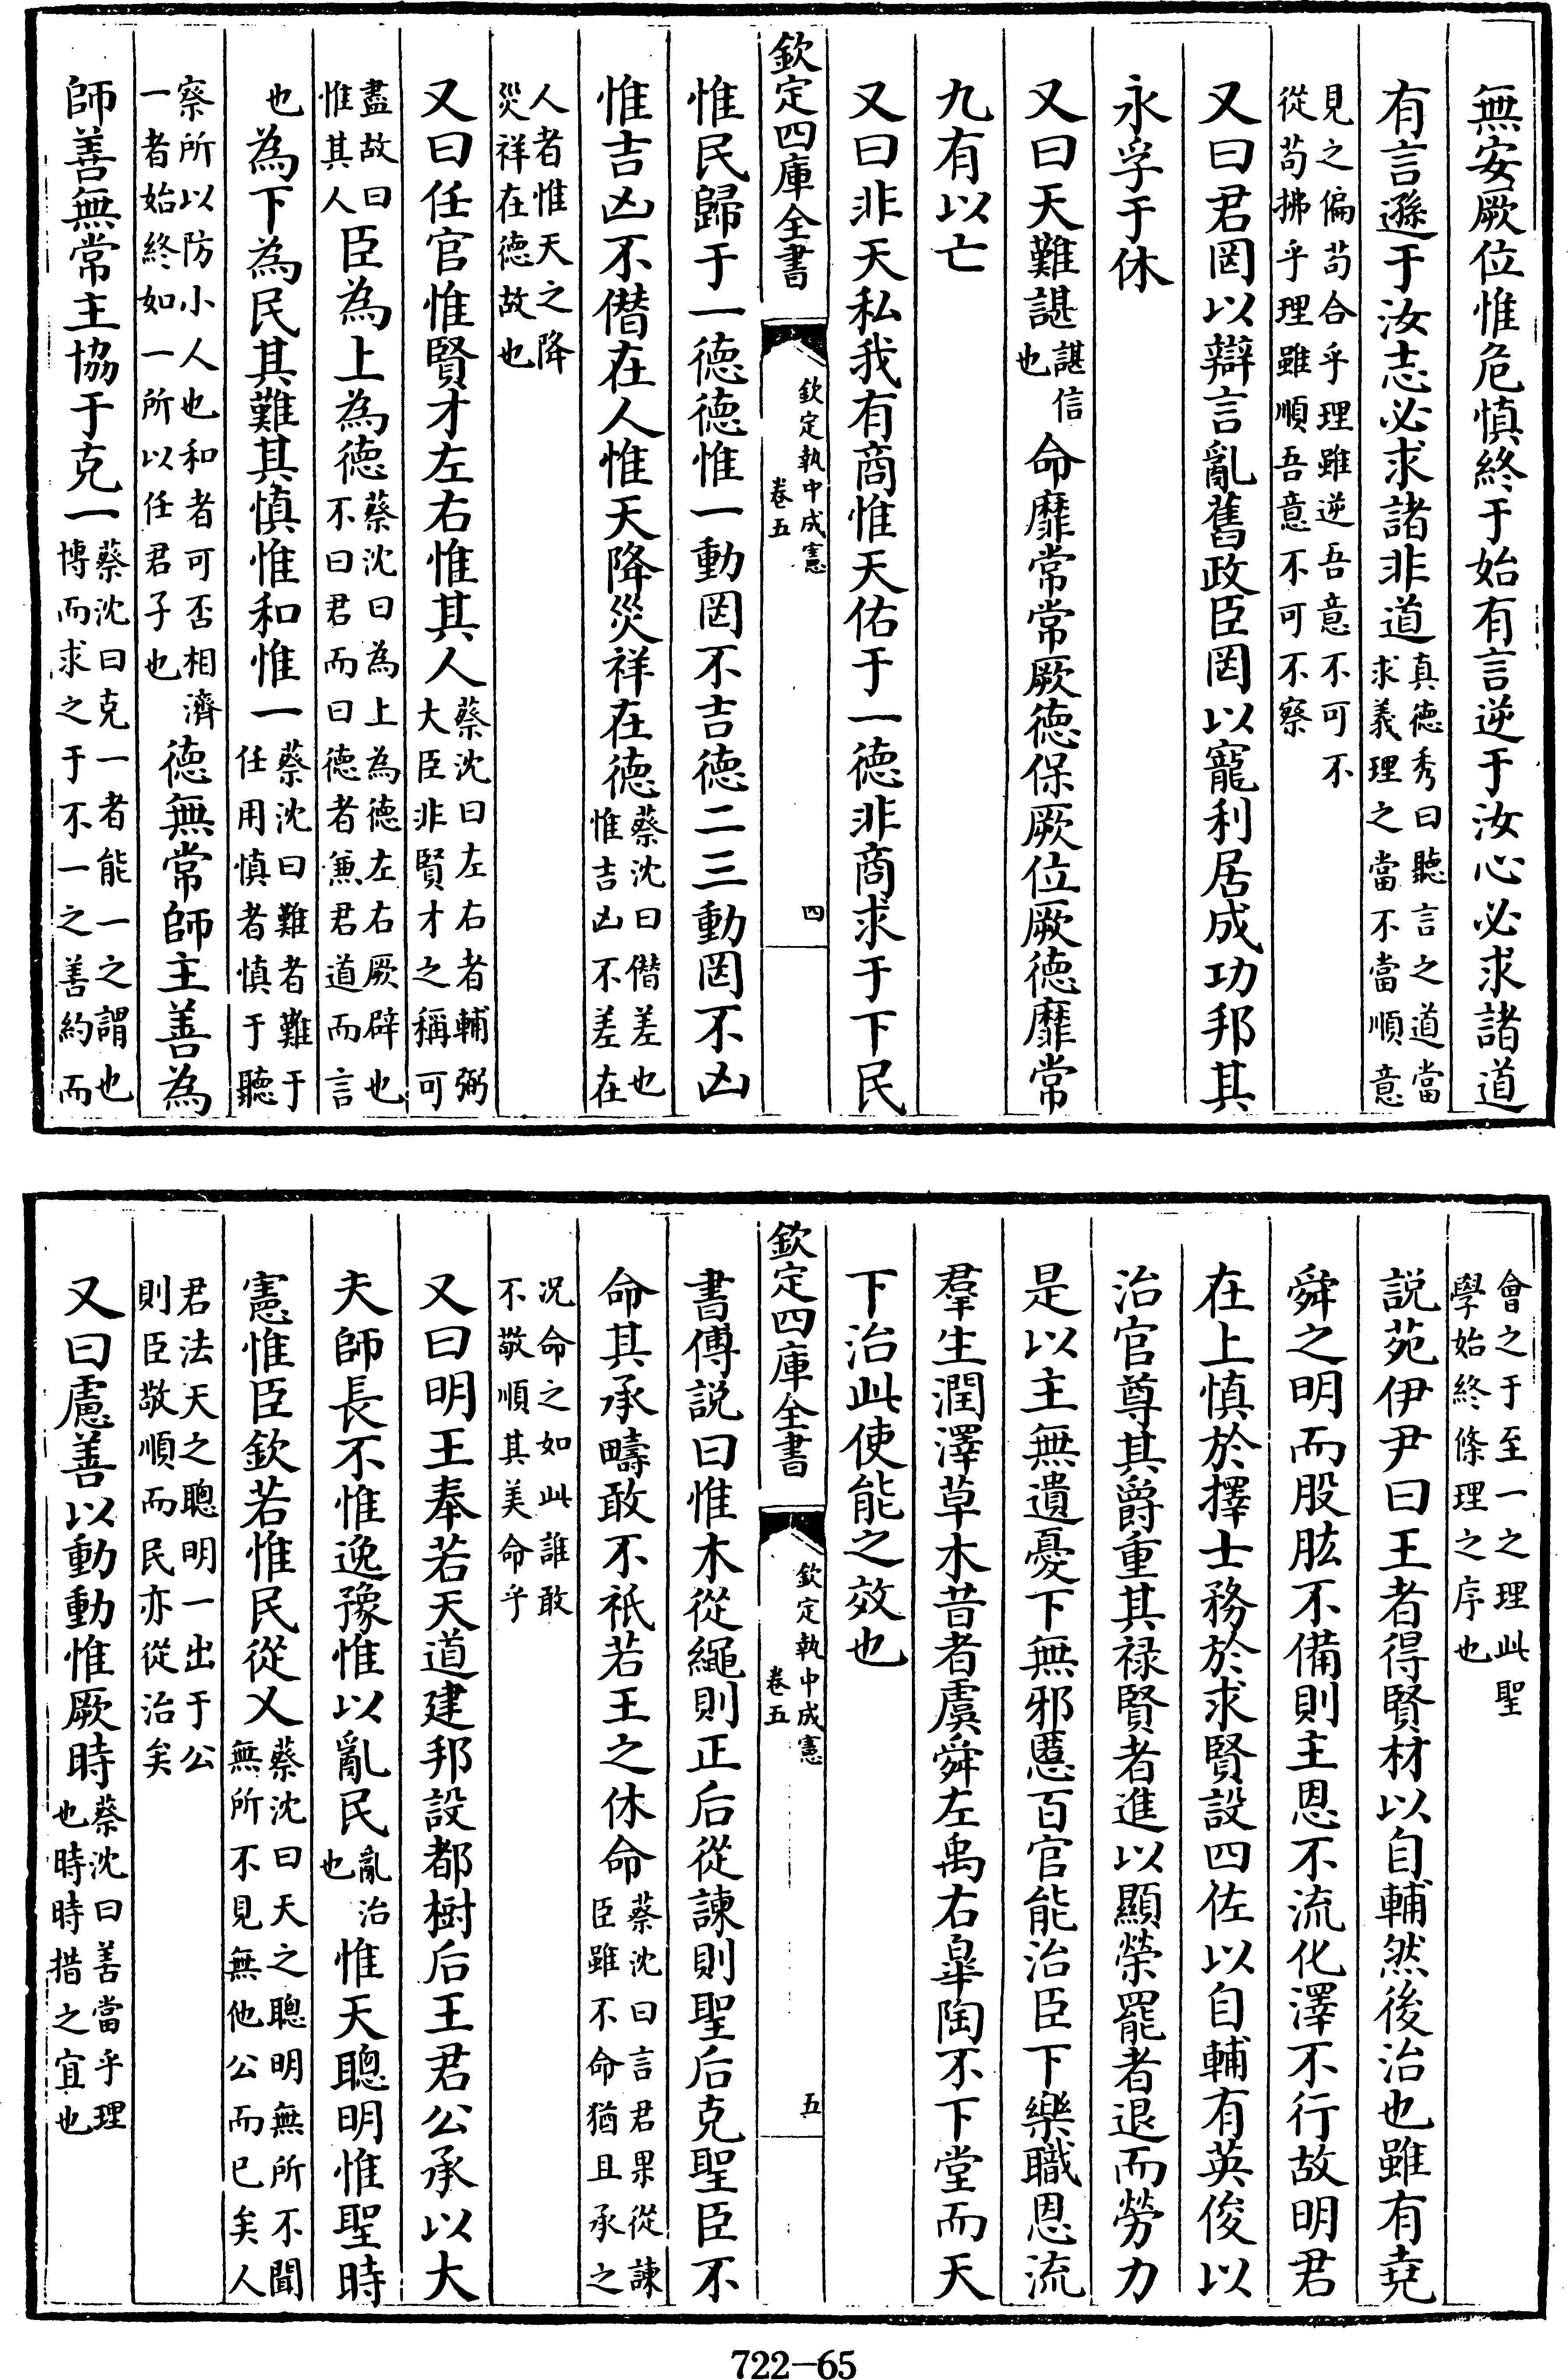 無安厥位惟危慎終于始有言逆于汝心必求諸道
有言遜于汝志必求諸非道真徳秀曰聽言之道當求義理之當不當順意
見之偏苟合乎理雖逆吾意不可不從苟拂乎理雖順吾意不可不察
又曰君罔以辯言亂舊政臣罔以寵利居成功邦其
永孚于休
又曰天難諶諶信也命靡常常厥徳保厥位厥徳靡常
九有以亡
又曰非天私我有商惟天佑于一徳非商求于下民
欽定四庫全書
欽定執中成憲
卷五
四
惟民歸于一徳徳惟一動罔不吉徳二三動罔不凶
惟吉凶不僭在人惟天降災祥在徳蔡沈曰僭差也惟吉凶不差在
人者惟天之降災祥在徳故也
又曰任官惟賢才左右惟其人蔡沈曰左右者輔弼大臣非賢才之稱可
盡故曰惟其人臣為上為徳蔡沈曰為上為徳左右厥辟也不曰君而曰徳者兼君道而言
也為下為民其難其慎惟和惟一蔡沈曰難者難于任用慎者慎于聽
察所以防小人也和者可否相濟一者始終如一所以任君子也徳無常師主善為
師善無常主協于克一蔡沈曰克一者能一之謂也博而求之于不一之善約而
會之于至一之理此聖學始終條理之序也
説苑伊尹曰王者得賢材以自輔然後治也雖有堯
舜之明而股肱不備則主恩不流化澤不行故明君
在上慎於擇士務於求賢設四佐以自輔有英俊以
治官尊其爵重其禄賢者進以顯榮罷者退而勞力
是以主無遺憂下無邪慝百官能治臣下樂職恩流
羣生潤澤草木昔者虞舜左禹右臯陶不下堂而天
下治此使能之效也
欽定四庫全書
欽定執中成憲
卷五
五
書傅説曰惟木從繩則正后從諫則聖后克聖臣不
命其承疇敢不祇若王之休命蔡沈曰言君果從諫臣雖不命猶且承之
况命之如此誰敢不敬順其美命乎
又曰明王奉若天道建邦設都樹后王君公承以大
夫師長不惟逸豫惟以亂民亂治也惟天聰明惟聖時
憲惟臣欽若惟民從乂蔡沈曰天之聰明無所不聞無所不見無他公而已矣人
君法天之聰明一出于公則臣敬順而民亦從治矣
又曰慮善以動動惟厥時蔡沈曰善當乎理也時時措之宜也
722-65